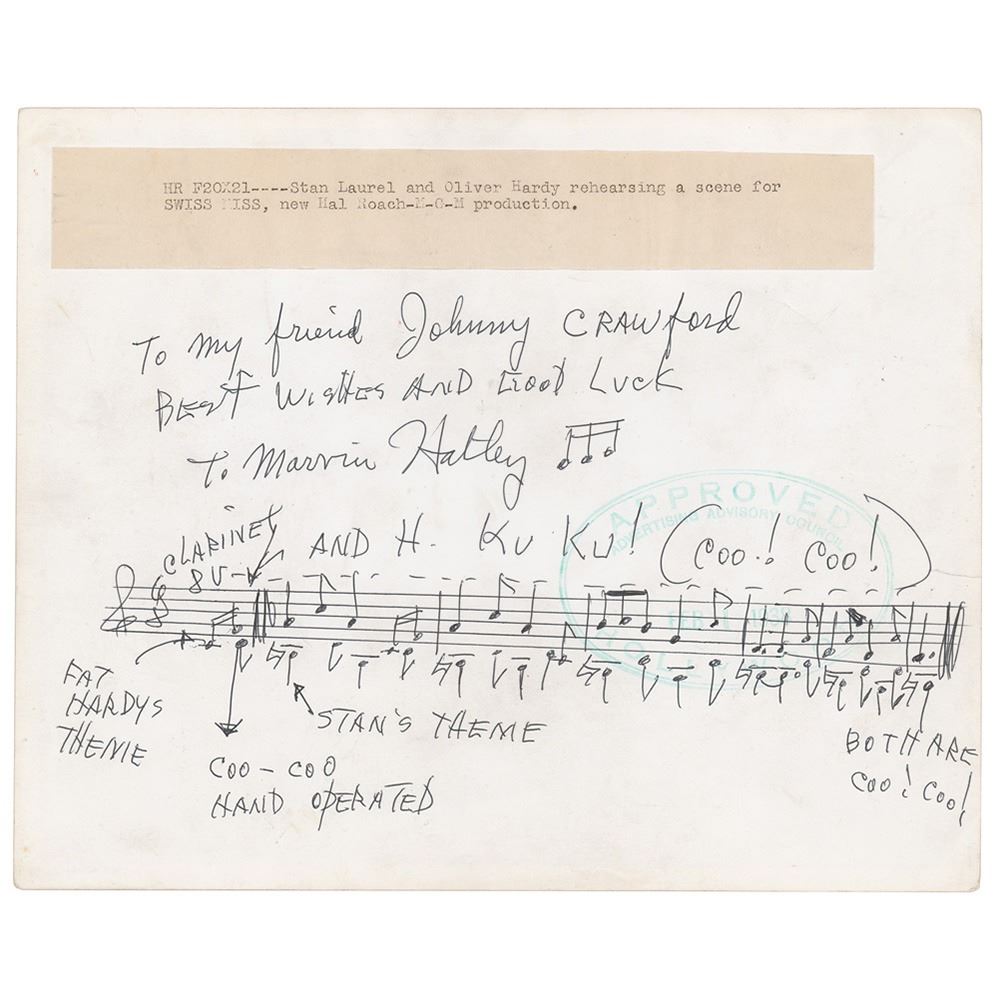 HR F20X21----Stan Laurel and Oliver Hardy rehearsing a scene for
SWISS MISS, new Hal Roach-M-G-M production.
To my friend Johnny CRAWford
BEST WISHES AND GOOD LUCK
To Marvin Hatley
APPROVED
ADVERTISING ADVISORY COUNCIL
CLARINET
8V
AND H. KU KU!
(COO! COO!)
FAT
HARDYS
THEME
STAN'S THEME
COO-COO
HAND OPERATED
BOTH ARE
COO! COO!